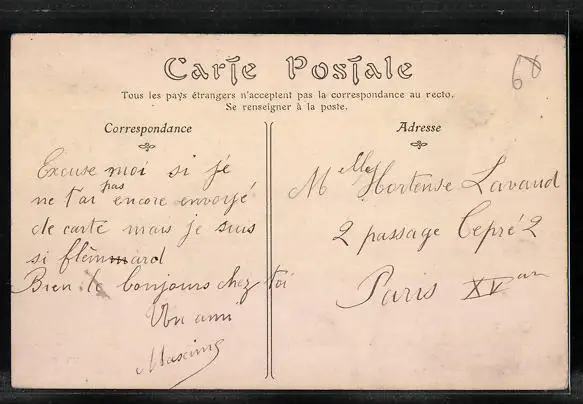 Carte Postale
60
Tous les pays étrangers n'acceptent pas la correspondance au recto.
Se renseigner à la poste.
Correspondance
Excuse moi si je
ne t'ai pas encore envoyé
de carte mais je suis
si flêmmard
Bien de bonjours chez toi
Un ami
Maxime
Adresse
Melle Hortense Lavaud
2 passage Cepré 2
Paris XV ar